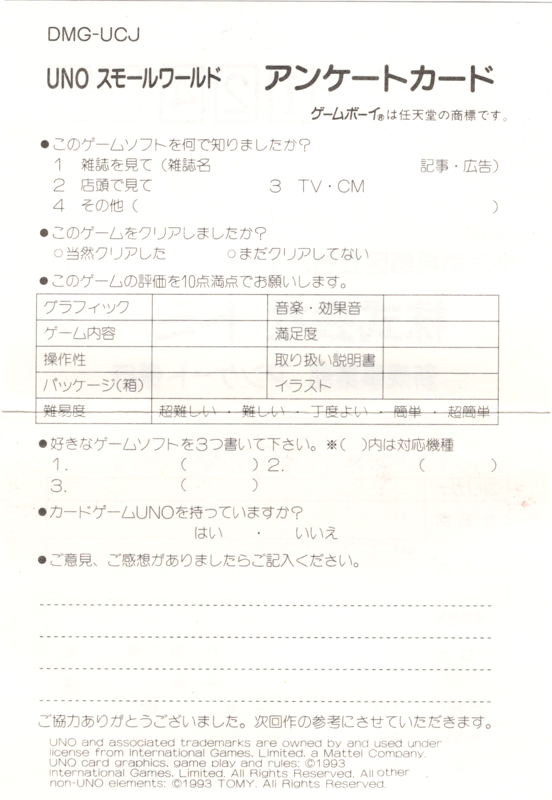 DMG-UCJ
UNO スモールワールド アンケートカード
ゲームボーイ®は任天堂の商標です。
●このゲームソフトを何で知りましたか？
1 雑誌を見て（雑誌名 記事・広告）
2 店頭で見て 3 TV・CM
4 その他（ ）
●このゲームをクリアしましたか？
○当然クリアした ○まだクリアしてない
●このゲームの評価を10点満点でお願いします。
グラフィック 音楽・効果音
ゲーム内容 満足度
操作性 取り扱い説明書
パッケージ(箱) イラスト
難易度 超難しい ・ 難しい ・ 丁度よい ・ 簡単 ・ 超簡単
●好きなゲームソフトを3つ書いて下さい。※( )内は対応機種
1. ( ) 2. ( )
3. ( )
●カードゲームUNOを持っていますか？
はい ・ いいえ
●ご意見、ご感想がありましたらご記入ください。
ご協力ありがとうございました。次回作の参考にさせていただきます。
UNO and associated trademarks are owned by and used under
license from International Games, Limited, a Mattel Company.
UNO card graphics, game play and rules: ©1993
International Games, Limited. All Rights Reserved. All other
non-UNO elements: ©1993 TOMY. All Rights Reserved.